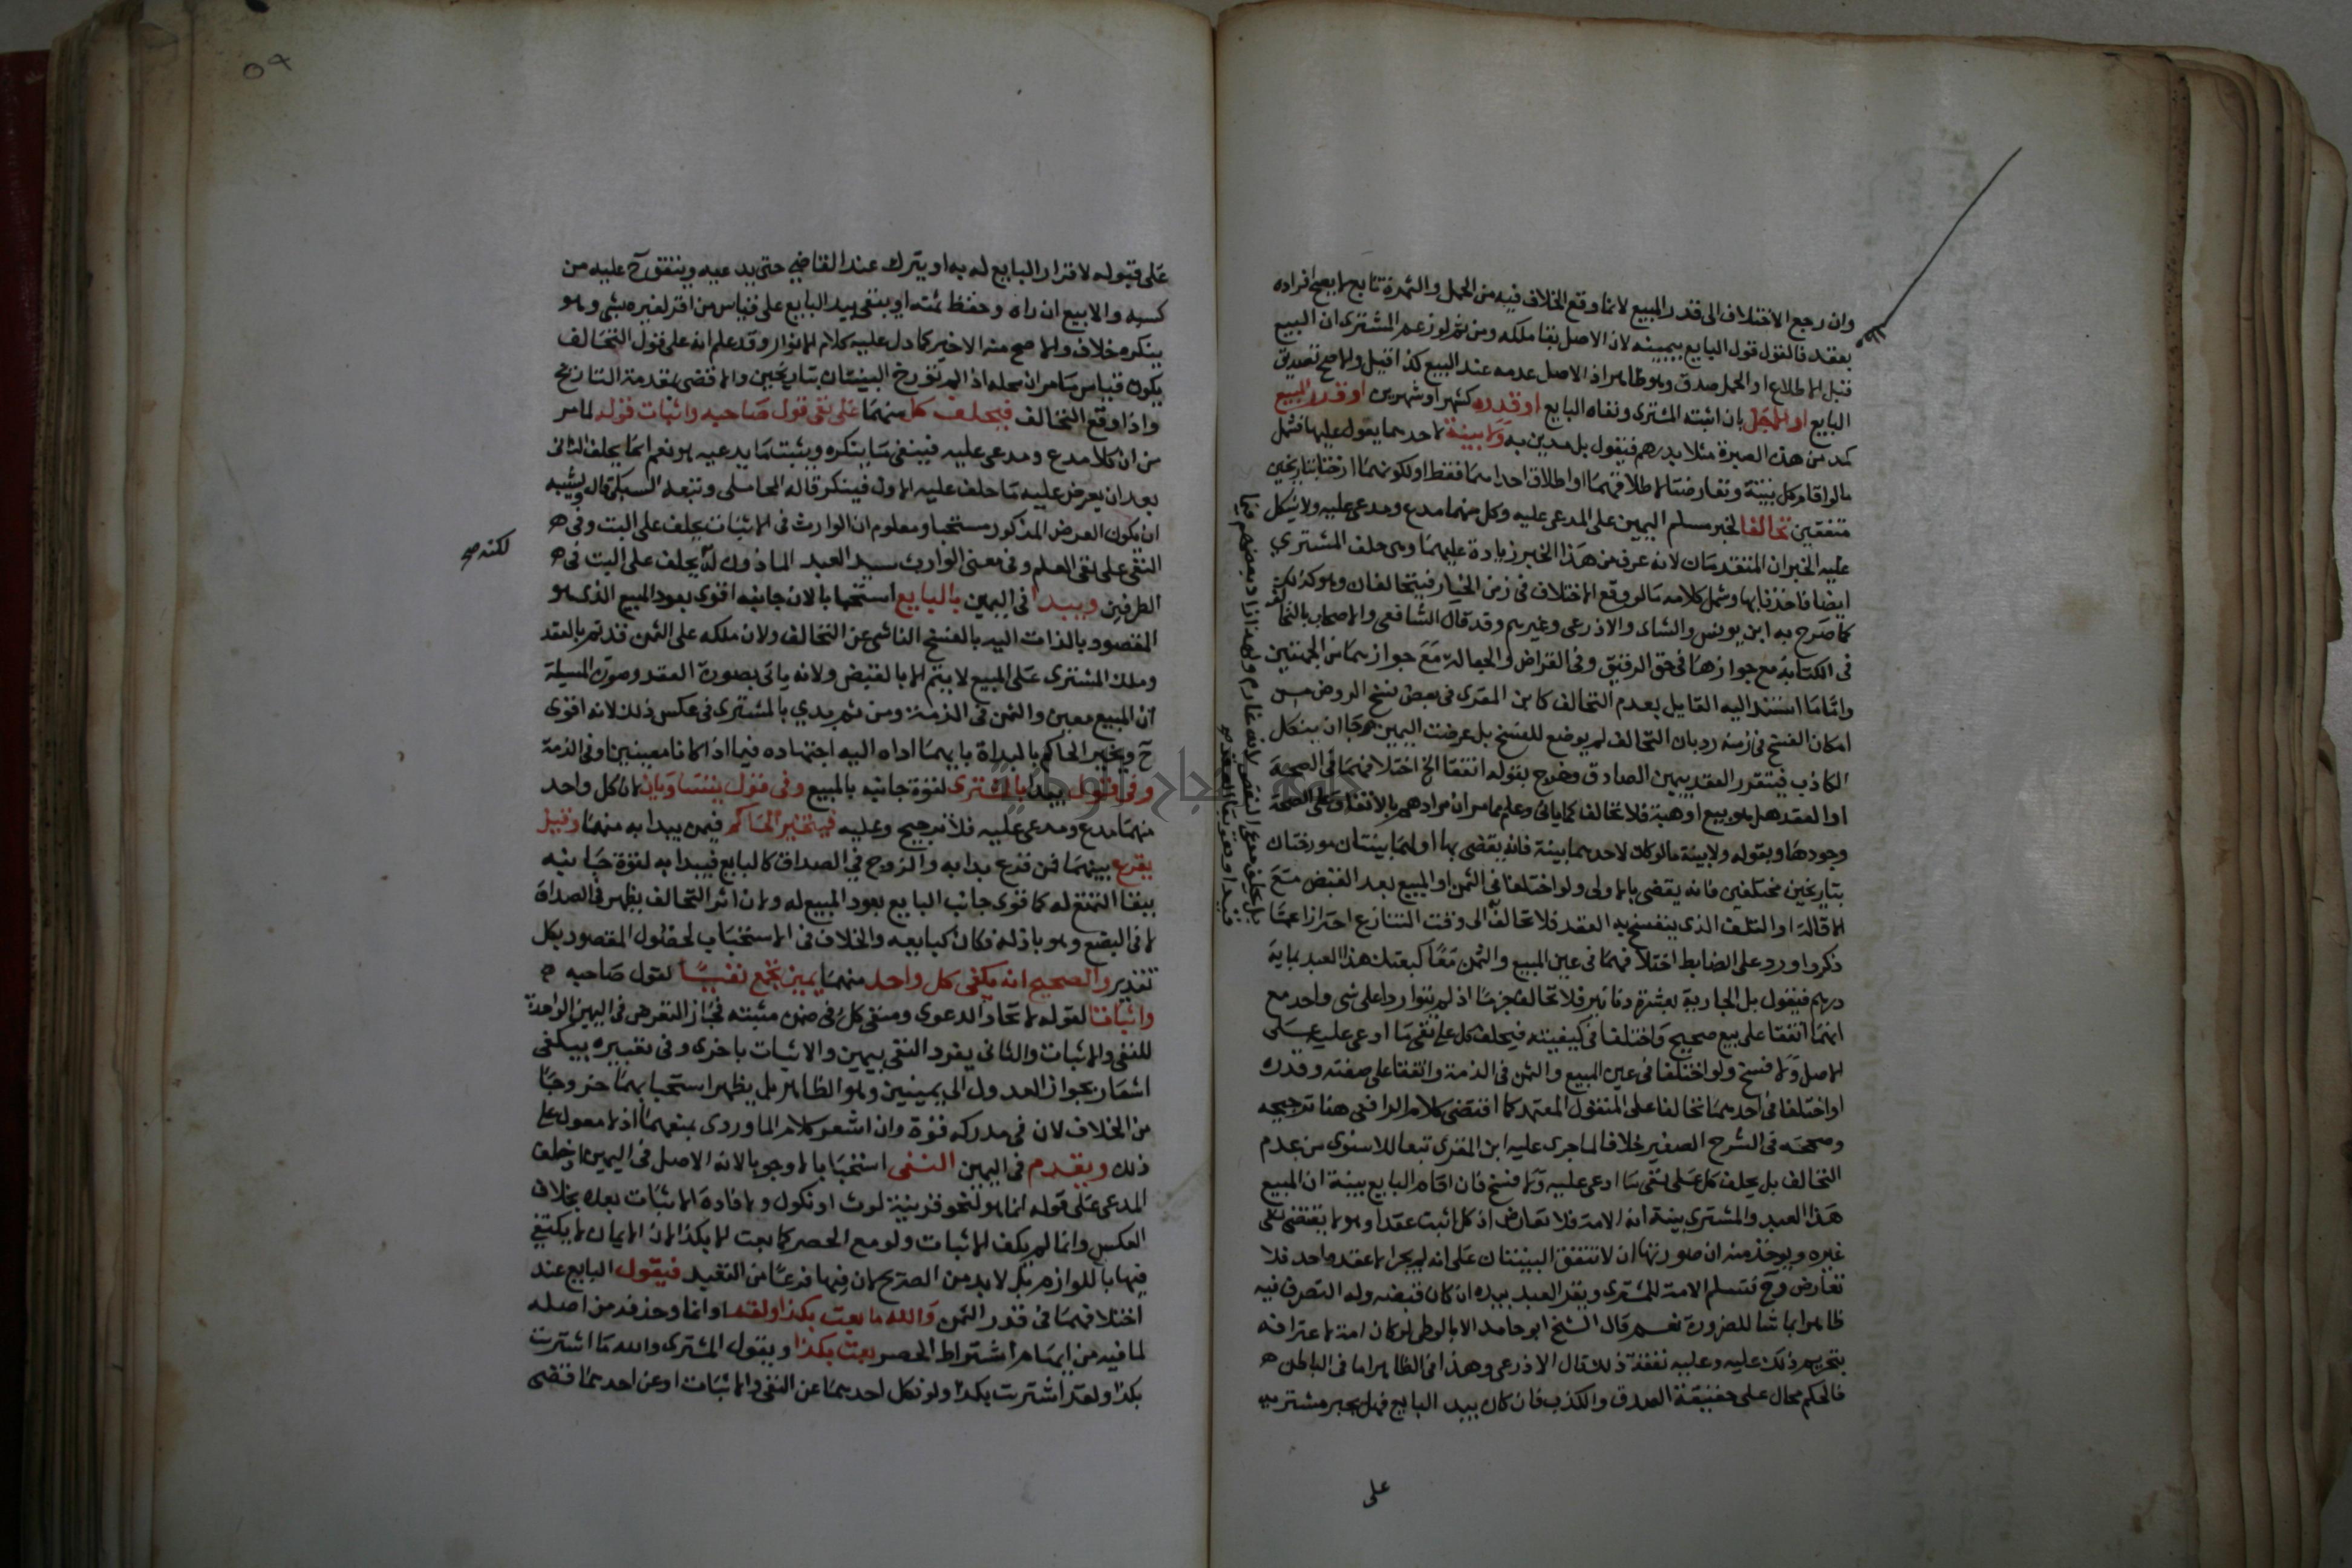 وان رجع الاختلاف الى قدر المبيع لانما وقع الخلاف فيه من الحمل والثمرة تابع لا يصح افراده
بعقد فالقول قول البايع بيمينه لان الاصل بقا ملكه ومن ثم لو زعم المشترى ان البيع
قبل الاطلاع او الحمل صدق وهو ظاهر اذ الاصل عدمه عند البيع كذا قيل والاصح تصديق
البايع او الاجل بان اثبته المشترى ونفاه البايع او قدره كشهر او شهرين او قدر المبيع
كمد من هذه الصبرة مثلا بدرهم فيقول بل مدين به ولا بينة لاحدهما يعول عليها فشمل
مالو اقام كل بينة وتعارضتا لاطلاقهما او اطلاق احداهما فقط او لكونهما ارختا بتاريخين
متفقين تحالفا لخبر مسلم اليمين على المدعى عليه وكل منهما مدع ومدعى عليه ولا يشكل
عليه الخبران المتقدمان لانه عرف من هذا الخبر زيادة عليهما وهى حلف المشتري
ايضا فاخذنا بها وشمل كلامه مالو وقع الاختلاف فى زمن الخيار فيتحالفان وهو كذلك
كما صرح به ابن يونس والشاى والاذرعى وغيرهم وقد قال الشافعى والاصحاب بالتحالف
فى الكتابة مع جوازها فى حق الرقيق وفى القراض والجعالة مع جوازهما من الجهتين
واما ما استند اليه القايل بعدم التحالف كابن المقرى فى بعض نسخ الروض من
امكان الفسخ فى زمنه رد بان التحالف لم يوضع للفسخ بل عرضت اليمين رجا ان ينكل
الكاذب فيتقرر العقد بيمين الصادق وخرج بقوله اتفقا الخ اختلافهما فى الصحة
او العقد هل هو بيع او هبة فلا تحالف كما ياتى وعلم مما مر ان مرادهم بالاتفاق على الصحة
وجودها وبقوله ولا بينة مالو كان لاحدهما بينة فانه يقضى بها او لهما بينتان مورختان
بتاريخين مختلفين فانه يقضى بالاولى ولو اختلفا فى الثمن او المبيع بعد القبض مع
الاقالة او التلف الذى ينفسخ به العقد فلا تحالف الى وقت التنازع احترازا عما
ذكر واورد على الضابط اختلافهما فى عين المبيع والثمن معا كبعتك هذا العبد بماية
درهم فيقول بل الجارية بعشرة دنانير فلا تحالف جزما اذ لم يتواردا على شى واحد مع
انهما اتفقا على بيع صحيح واختلفا فى كيفيته فيحلف كل على نفى ما ادعى عليه على
الاصل ولا فسخ ولو اختلفا فى عين المبيع والثمن فى الذمة واتفقا على صفته وقدره
او اختلفا فى احدهما تحالفا على المنقول المعتمد كما اقتضى كلام الرافعى هنا ترجيحه
وصححه فى الشرح الصغير خلافا لما جرى عليه ابن المقرى تبعا للاسنوى من عدم
التحالف بل يحلف كل على نفى ما ادعى عليه ولا فسخ فان اقام البايع بينة ان المبيع
هذا العبد والمشترى بينة انه الامة فلا تعارض اذ كل اثبت عقدا وهو لا يقتضى نفى
غيره ويوخذ منه ان صورتها ان لا تتفق البينتان على انه لم يجر الا عقد واحد فلا
تعارض وح تسلم الامة للمشترى ويقر العبد بيده ان كان قبضه وله التصرف فيه
ظاهرا بما شا للضرورة نعم قال الشيخ ابو حامد الا بالوطى لو كان امة لاعترافه
بتحريم ذلك عليه وعليه نفقة ذلك قال الاذرعى وهذا فى الظاهر اما فى الباطن
فالحكم محال على حقيقة الصدق والكذب فان كان بيد البايع فهل يجبر مشتريه
على
ولهذا زاد بعضهم فيما
بل يحلف مدعى النقص لانه غارم
قيد او حقوقها العقد صح
٥٩
على قبوله لاقرار البايع له به او يترك عند القاضي حتى يدعيه وينفق ح عليه من
كسبه والا بيع ان راه وحفظ ثمنه او يبقى بيد البايع على قياس من اقر لغيره بشى وهو
ينكره خلاف والاصح منه الاخير كما دل عليه كلام الانوار وقد علم انه على قول التحالف
يكون قياس ما مر ان محله اذا لم تورخ البينتان بتاريخين والا قضى بمقدمة التاريخ
واذا وقع التحالف فيحلف كل منهما على نفى قول صاحبه واثبات قوله لما مر
من ان كلا مدع ومدعى عليه فينفى ما ينكره ويثبت ما يدعيه هو نعم انما يحلف الثانى
بعد ان يعرض عليه ما حلف عليه الاول فينكر قاله المحاملى وتبعه السبكى قال ويشبه
ان يكون العرض المذكور مستحبا ومعلوم ان الوارث فى الاثبات يحلف على البت وفى
النفى على نفى العلم وفى معنى الوارث سيد العبد الماذون له يحلف على البت فى
لكنه صح
الطرفين ويبدا فى اليمين بالبايع استحبابا لان جانبه اقوى بعود المبيع الذى هو
المقصود بالذات اليه بالفسخ الناشى عن التحالف ولان ملكه على الثمن قد تم بالعقد
وملك المشترى على المبيع لا يتم الا بالقبض ولانه ياتى بصورة العقد وصورة المسيلة
ان المبيع معين والثمن فى الذمة ومن ثم بدي بالمشترى فى عكس ذلك لانه اقوى
ح ويخير الحاكم بالبداة بايهما اداه اليه اجتهاده فيما اذا كانا معينين او فى الذمة
وفى قول يبدا بالمشترى لقوة جانبه بالمبيع وفى قول يتساويان لان كل واحد
منهما مدع ومدعى عليه فلا ترجيح وعليه فيتخير الحاكم فيمن يبدا به منهما وقيل
يقرع بينهما فمن قرع بدا به والزوج في الصداق كالبايع فيبدا به لقوة جانبه
ببقا التمتع له كما قوى جانب البايع بعود المبيع له ولان اثر التحالف يظهر فى الصداق
لا فى البضع وهو باذله فكان كبايعه والخلاف فى الاستحباب لحصول المقصود بكل
تقدير والصحيح انه يكفى كل واحد منهما يمين تجمع نفيا لقول صاحبه
واثباتا لقوله لاتحاد الدعوى ومنفى كل فى ضمن مثبته فجاز التعرض فى اليمين الواحدة
للنفى والاثبات والثانى يفرد النفى بيمين والاثبات باخرى وفى تعبيره بيكفى
اشعار بجواز العدول الى يمينين وهو الظاهر بل يظهر استحبابهما خروجا
من الخلاف لان فى مدركه قوة وان اشعر كلام الماوردى بمنعهما اذ لا معول على
ذلك ويقدم فى اليمين النفى استحبابا لا وجوبا لانه الاصل فى اليمين اذ حلف
المدعى على قوله انما هو لنحو قرينة لوث او نكول ولافادة الاثبات بعده بخلاف
العكس وانما لم يكف الاثبات ولو مع الحصر كما بعت الا بكذا لان الايمان لا يكتفي
فيها باللوازم بل لا بد من الصريح لان فيها نوعا من التعبد فيقول البايع عند
اختلافهما فى قدر الثمن والله ما بعت بكذا ولقد او انما وحذفه من اصله
لما فيه من ايهام اشتراط الحصر بعت بكذا ويقول المشترى والله ما اشتريت
بكذا ولقد اشتريت بكذا ولو نكل احدهما عن النفى والاثبات او عن احدهما قضى